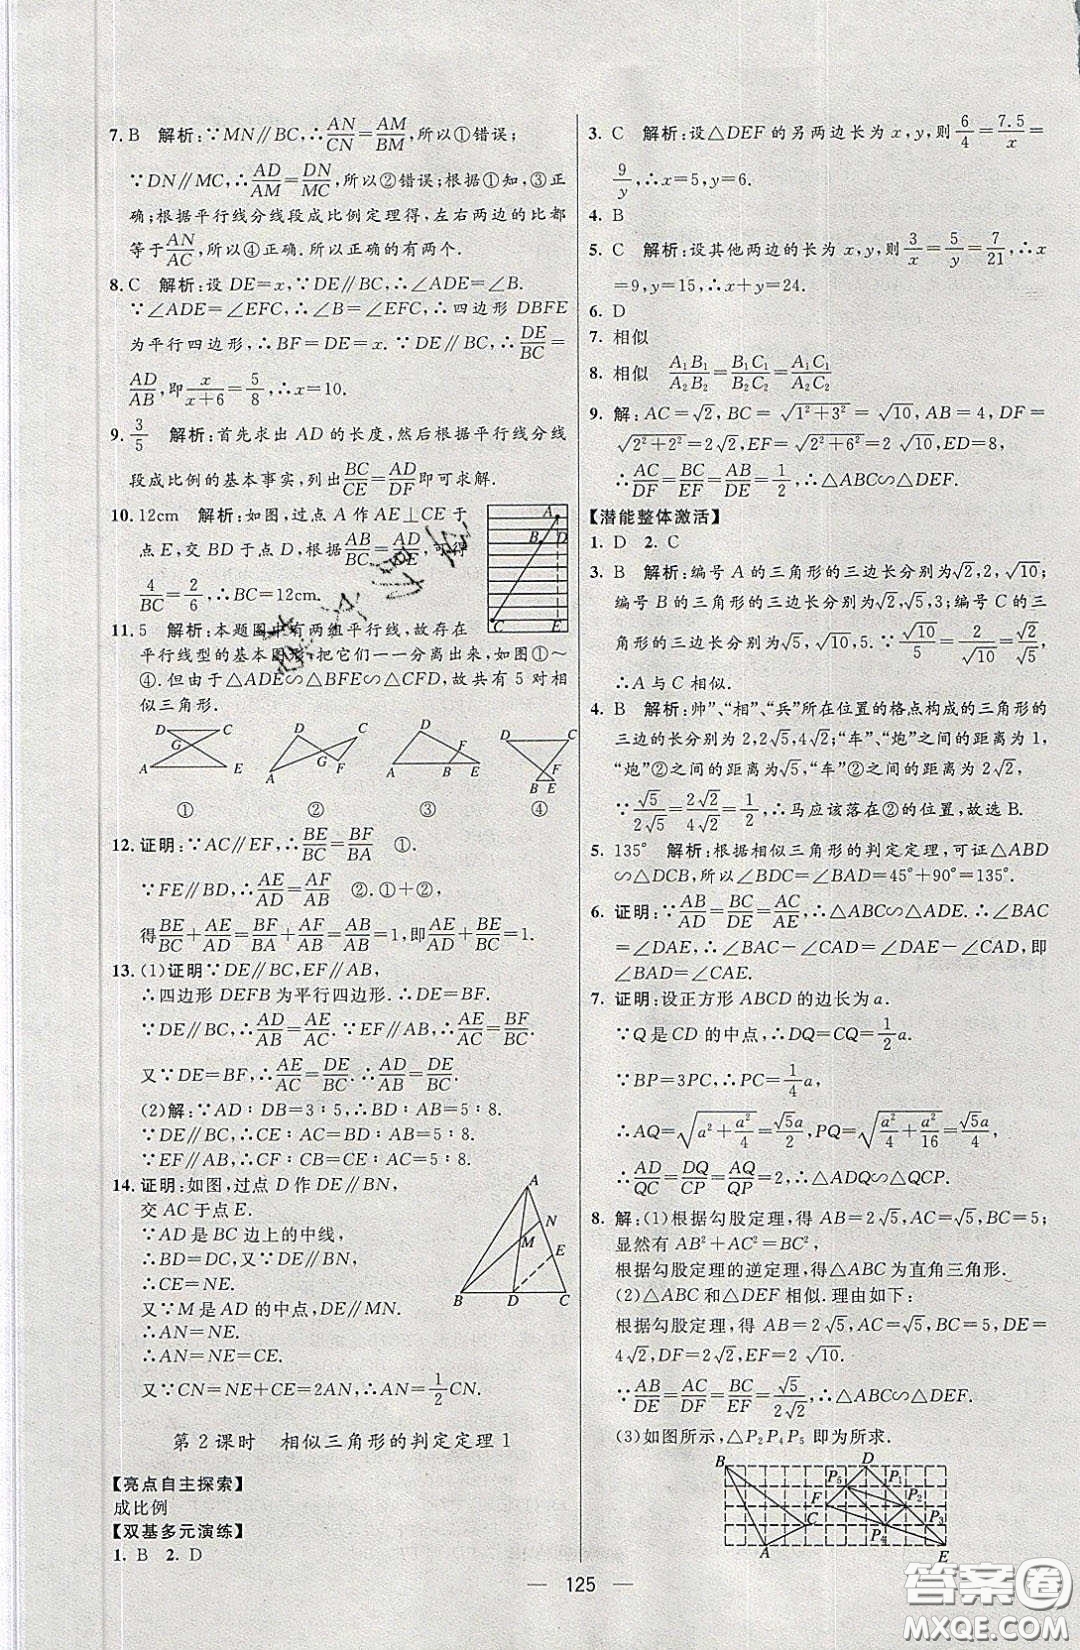 7. B　解析:∵MN∥BC,∴AN/CN=AM/BM,所以①错误;
∵DN∥MC,∴AD/AM=DN/MC,所以②错误;根据①知,③正
确;根据平行线分线段成比例定理得,左右两边的比都
等于AN/AC,所以④正确.所以正确的有两个.
8. C　解析:设 DE=x,∵DE∥BC,∴∠ADE=∠B.
∵∠ADE=∠EFC,∴∠B=∠EFC,∴四边形 DBFE
为平行四边形,∴BF=DE=x.∵DE∥BC,∴DE/BC=
AD/AB,即x/(x+6)=5/8,∴x=10.
9. 3/5　解析:首先求出 AD 的长度,然后根据平行线分线
段成比例的基本事实,列出BC/CE=AD/DF即可求解.
10. 12cm　解析:如图,过点 A 作 AE⊥CE 于
点 E,交 BD 于点 D,根据AB/BC=AD/DE,可得
4/BC=2/6,∴BC=12cm.
A
B D
C E
11. 5　解析:本题图中有两组平行线,故存在
平行线型的基本图形,把它们一一分离出来,如图①~
④.但由于△ADE∽△BFE∽△CFD,故共有 5 对相
似三角形.
D C G A E
D C G F A
D F A B E
D C F B E
①　②　③　④
12. 证明:∵AC∥EF,∴BE/BC=BF/BA　①.
∵FE∥BD,∴AE/AD=AF/AB　②.①+②,
得BE/BC+AE/AD=BF/BA+AF/AB=AB/AB=1,即AE/AD+BE/BC=1.
13. (1)证明∵DE∥BC,EF∥AB,
∴四边形 DEFB 为平行四边形.∴DE=BF.
∵DE∥BC,∴AD/AB=AE/AC.∵EF∥AB,∴AE/AC=BF/BC.
又∵DE=BF,∴AE/AC=DE/BC.∴AD/AB=DE/BC.
(2)解:∵AD∶DB=3∶5,∴BD∶AB=5∶8.
∵DE∥BC,∴CE∶AC=BD∶AB=5∶8.
∵EF∥AB,∴CF∶CB=CE∶AC=5∶8.
14. 证明:如图,过点 D 作 DE∥BN,
交 AC 于点 E.
∵AD 是 BC 边上的中线,
∴BD=DC.∵DE∥BN,
∴CE=NE.
又∵M 是 AD 的中点,DE∥MN.
∴AN=NE.
∴AN=NE=CE.
又∵CN=NE+CE=2AN,∴AN=1/2CN.
A
N
M E
B D C
第 2 课时　相似三角形的判定定理 1
【亮点自主探索】
成比例
【双基多元演练】
1. B　2. D
3. C　解析:设△DEF 的另两边长为 x,y,则6/4=7.5/x=
9/y,∴x=5,y=6.
4. B
5. C　解析:设其他两边的长为 x,y,则3/x=5/y=7/21,∴x
=9,y=15,∴x+y=24.
6. D
7. 相似
8. 相似　A₁B₁/A₂B₂=B₁C₁/B₂C₂=A₁C₁/A₂C₂
9. 解:AC=√2,BC=√(1²+3²)=√10,AB=4,DF=
√(2²+2²)=2√2,EF=√(2²+6²)=2√10,ED=8,
∴AC/DF=BC/EF=AB/DE=1/2,∴△ABC∽△DEF.
【潜能整体激活】
1. D　2. C
3. B　解析:编号 A 的三角形的三边长分别为√2,2,√10;
编号 B 的三角形的三边长分别为√2,√5,3;编号 C 的三
角形的三边长分别为√2,√5,5.∵√10/5=2/√10=√2/√5,
∴A 与 C 相似.
4. B　解析:帅”、“相”、“兵”所在位置的格点构成的三角形的
三边的长分别为 2,2√5,4√2;“车”、“炮”之间的距离为 1,
“炮”②之间的距离为√5,“车”②之间的距离为 2√2,
∵√5/2√5=2√2/4√2=1/2,∴马应该落在②的位置,故选 B.
5. 135°　解析:根据相似三角形的判定定理,可证△ABD
∽△DCB,所以∠BDC=∠BAD=45°+90°=135°.
6. 证明:∵AB/AD=BC/DE=AC/AE,∴△ABC∽△ADE.∴∠BAC
=∠DAE,∴∠BAC-∠CAD=∠DAE-∠CAD,即
∠BAD=∠CAE.
7. 证明:设正方形 ABCD 的边长为 a.
∵Q 是 CD 的中点,∴DQ=CQ=1/2a.
∵BP=3PC,∴PC=1/4a,
∴AQ=√(a²+a²/4)=√5a/2,PQ=√(a²/4+a²/16)=√5a/4,
∴AD/QC=DQ/CP=AQ/QP,∴△ADQ∽△QCP.
8. 解:(1)根据勾股定理,得 AB=2√5,AC=√5,BC=5;
显然有 AB²+AC²=BC²,
根据勾股定理的逆定理,得△ABC 为直角三角形.
(2)△ABC 和△DEF 相似.理由如下:
根据勾股定理,得 AB=2√5,AC=√5,BC=5,DE=
4√2,DF=2√2,EF=2√10.
∵AB/DE=AC/DF=BC/EF=√5/2√2,∴△ABC∽△DEF.
(3)如图所示,△P₂P₄P₅ 即为所求.
B D P₅ P₁ F P₂ C P₄ P₃ A E
125
答案圈
MXQE.COM